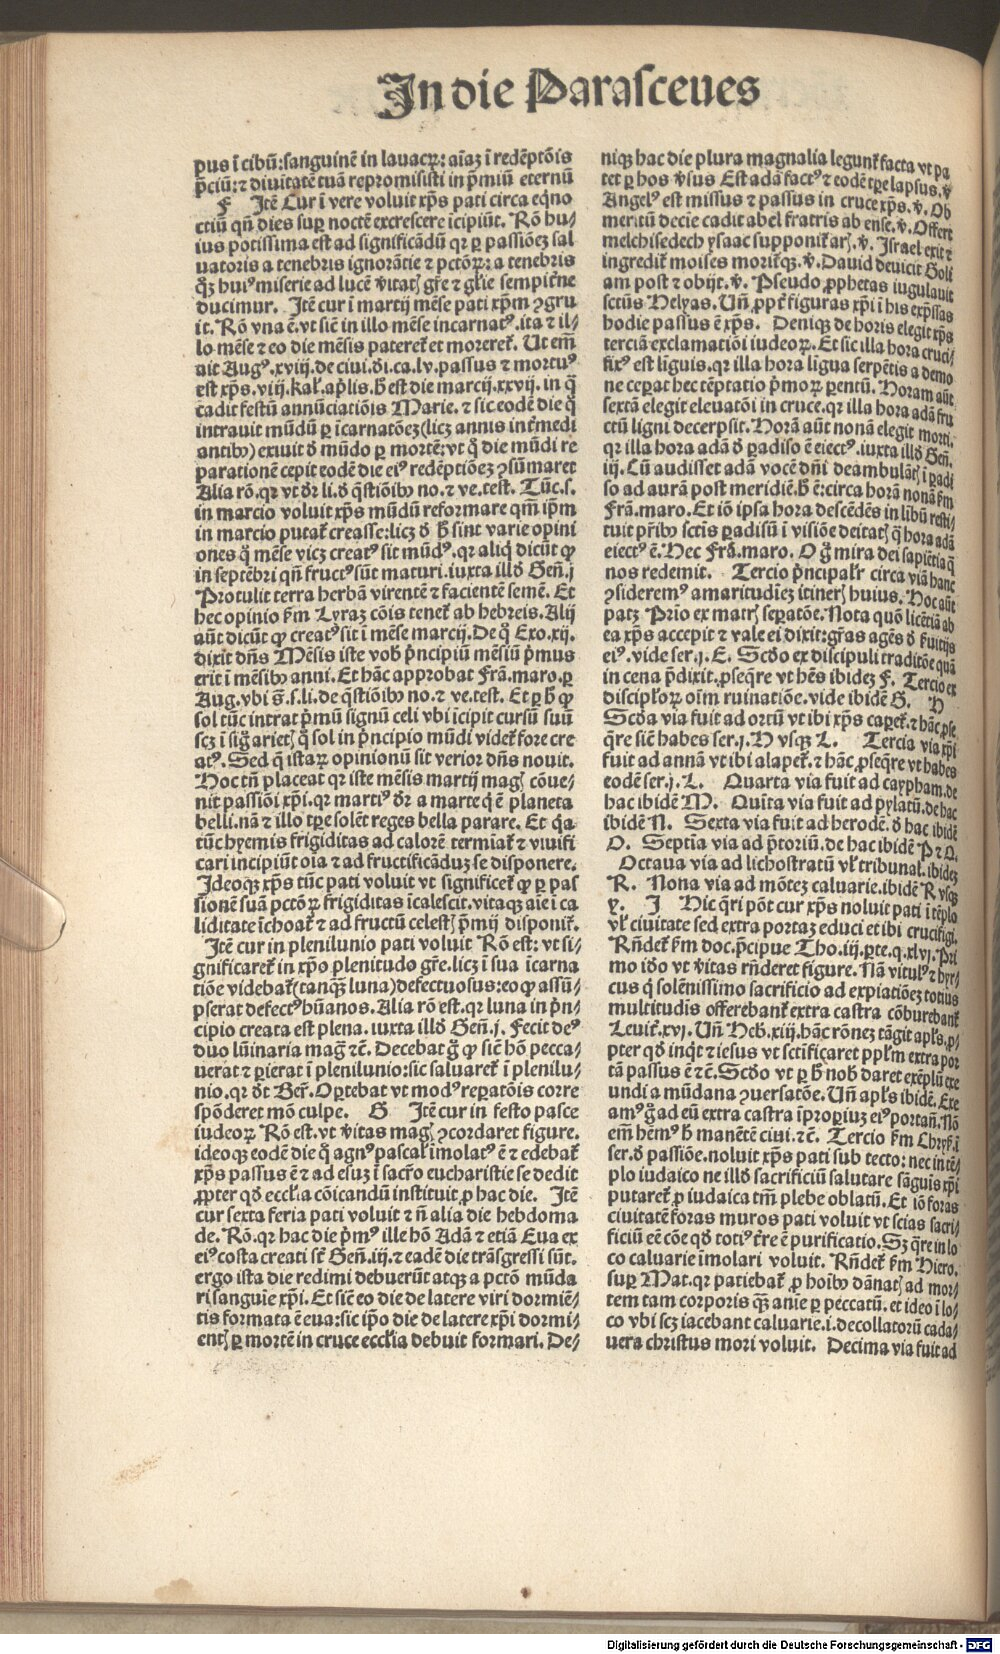 In die Parasceues
pus ī cibū: sanguinē in lauacꝝ: aīaꝫ ī redēptōis
p̄ciū: ⁊ diuitatē tuā repromisisti in p̄miū eternū
F Itē Cur ī vere voluit xp̄s pati circa eq̄no
ctiū qn̄ dies suꝑ noctē excrescere īcipiūt. Rō hu/
ius potissima est ad significādū qꝛ ꝑ passiōeꝫ sal
uatoris a tenebris ignorātie ⁊ pctōꝝ: a tenebris
ducimur. Itē cur ī martij mēse pati xp̄m ꝯgru
it. Rō vna ē. vt sic̄ in illo mēse incarnatꝰ. ita ⁊ il/
lo mēse ⁊ eo die mēsis pateret̄ et moreret̄. Ut em̄
ait Augꝰ. xviij. de ciui. di. ca. lv. passus ⁊ mortuꝰ
est xp̄s. viij. kal̄. apl̄is. h̄ est die marcij. xxvij. in q̄
cadit festū annūciatiōis Marie. ⁊ sic eodē die q̄
intrauit mūdū ꝑ īcarnatōeꝫ (licꝫ annis int̄medi
antibꝰ) exiuit d̄ mūdo ꝑ mortē: vt q̄ die mūdi re
parationē cepit eodē die eiꝰ redēptiōeꝫ ꝯsūmaret
Alia rō. qꝛ vt dr̄ li. d̄ q̄stiōibꝰ no. ⁊ ve. test. Tūc. s.
in marcio voluit xp̄s mūdū reformare qm̄ ip̄m
in marcio putat̄ creasse: licꝫ d̄ h̄ sint varie opini
ones q̄ mēse vicꝫ creatꝰ sit mūdꝰ. qꝛ aliq̄ dicūt ꝙ
in septēbri qn̄ fructꝰ sūt maturi. iuxta illd̄ Gen̄. j
Protulit terra herbā virentē ⁊ facientē semē. Et
hec opinio fm̄ Lyraꝫ cōis tenet̄ ab hebreis. Alij
aūt dicūt ꝙ creatꝰ sit ī mēse marcij. De q̄ Exo. xij.
dixit dn̄s Mēsis iste vob̄ p̄ncipiū mēsiū p̄mus
erit ī mēsibꝰ anni. Et hāc approbat Frā. maro. ꝑ
Aug. vbi s̄. s. li. de q̄stiōibꝰ no. ⁊ ve. test. Et ꝑ h̄ ꝙ
sol tūc intrat p̄mū signū celi vbi īcipit cursū suū
scꝫ ī siḡ arietꝭ q̄ sol in p̄ncipio mūdi videt̄ fore cre
atꝰ. Sed q̄ istaꝝ opinionū sit verior dn̄s nouit.
Hoc tn̄ placeat qꝛ iste mēsis martij magꝭ cōue/
nit passiōi xp̄i. qꝛ martiꝰ dr̄ a marte q̄ ē planeta
belli. nā ⁊ illo tꝑe solēt reges bella parare. Et q̄a
tūc hyemis frigiditas ad calorē termiat̄ ⁊ viuifi
cari incipiūt oīa ⁊ ad fructificāduꝫ se disponere.
Ideoqꝫ xp̄s tūc pati voluit vt significet̄ ꝙ ꝑ pas
sionē suā pctōꝝ frigiditas īcalescit. vitaqꝫ aīe ī ca
liditate īchoat̄ ⁊ ad fructū celestꝭ p̄mij disponit̄.
Itē cur in plenilunio pati voluit Rō est: vt si/
gnificaret̄ in xp̄o plenitudo gr̄e. licꝫ ī sua īcarna
tiōe videbat̄ (tanqꝫ luna) defectuosus: eo ꝙ assū/
pserat defectꝰ hūanos. Alia rō est. qꝛ luna in p̄n/
cipio creata est plena. iuxta illd̄ Gen̄. j. Fecit deꝰ
duo lūinaria maḡ ⁊c̄. Decebat ḡ ꝙ sic̄ hō pecca/
uerat ⁊ ꝑierat ī plenilunio: sic saluaret̄ ī plenilu/
nio. qꝛ dt̄ Ber̄. Oꝑtebat vt modꝰ reꝑatōis corre
spōderet mō culpe. G Itē cur in festo pasce
iudeoꝝ Rō est. vt v̄itas magꝭ ꝯcordaret figure.
ideoqꝫ eodē die q̄ agnꝰ pascal̄ īmolatꝰ ē ⁊ edebat̄
xp̄s passus ē ⁊ ad esuꝫ ī sacr̄o eucharistie se dedit
ꝓpter qd̄ eccl̄ia cōicandū instituit ꝓ hac die. Itē
cur sexta feria pati voluit ⁊ n̄ alia die hebdoma
de. Rō. qꝛ hac die p̄mꝰ ille hō Adā ⁊ etiā Eua ex
eiꝰ costa creati st̄ Gen̄. iij. ⁊ eadē die trāsgressi sūt.
ergo ista die redimi debuerūt atqꝫ a pctō mūda
ri sanguīe xp̄i. Et sic̄ eo die de latere viri dormiē/
tis formata ē eua: sic ip̄o die de latere xp̄i dormi/
entꝭ ꝑ mortē in cruce eccl̄ia debuit formari. De/
niqꝫ hac die plura magnalia legunt̄ facta vt pa
tet ꝑ hos v̄sus Est adā factꝰ ⁊ eodē tꝑe lapsus. v̄
Angelꝰ est missus ⁊ passus in cruce xp̄s. v̄. Ob
meritū decie cadit abel fratris ab ense. v̄. Offert
melchisedech ysaac supponit̄ arꝭ. v̄. Israel exit ⁊
ingredit̄ moises morit̄qꝫ. v̄. Dauid deuicit Goli
am post ⁊ obijt. v̄. Pseudo ꝓphetas iugulauit
sctūs Helyas. Un̄ ꝓpt̄ figuras xp̄i ī his exp̄ssas
hodie passus ē xp̄s. Deniqꝫ de horis elegit xp̄s
terciā exclamatiōi iudeoꝝ. Et sic illa hora cruci/
fixꝰ est līguis. qꝛ illa hora līgua serpētis a demo
ne ceꝑat hec tēptatio p̄moꝝ ꝑentū. Horam aūt
sextā elegit eleuatōi in cruce. qꝛ illa hora adā fru
ctū ligni decerpsit. Horā aūt nonā elegit morti.
qꝛ illa hora adā d̄ ꝑadiso ē eiectꝰ. iuxta illd̄ Gen̄.
iij. Cū audisset adā vocē dn̄i deambulātꝭ ī ꝑadi
so ad aurā post meridiē. h̄ ē: circa horā nonā fm̄
Frā. maro. Et iō ipsa hora descēdēs in libū resti/
tuit pr̄ibꝰ sctīs ꝑadisū ī visiōe deitatꝭ q̄ hora adā
eiectꝰ ē. Hec Frā. maro. O ḡ mira dei sapiētia q̄
nos redemit. Tercio p̄ncipalr̄ circa viā hanc
ꝯsideremꝰ amaritudīeꝫ itinerꝭ huius. Hoc aūt
patꝫ Pr̄io ex matrꝭ seꝑatōe. Nota quō licētiā ab
ea xp̄s accepit ⁊ vale ei dixit: gr̄as agēs d̄ ẜuitijs
eiꝰ. vide ser. j. E. Scd̄o ex discipuli traditōe quā
in cena p̄dixit. ꝓseq̄re vt hēs ibideꝫ F. Tercio ex
discipl̄oꝝ oīm ruinatiōe. vide ibidē G. H
Scd̄a via fuit ad ortū vt ibi xp̄s caꝑet̄. ⁊ hāc ꝓse
q̄re sic̄ habes ser. j. H vsqꝫ L. Tercia via xp̄i
fuit ad annā vt ibi alapet̄. ⁊ hāc ꝓseq̄re vt habes
eodē ser. j. L. Quarta via fuit ad caypham. de
hac ibidē M. Quīta via fuit ad pylatū. de hac
ibidē N. Sexta via fuit ad herodē. d̄ hac ibidē
O. Septīa via ad p̄toriū. de hac ibidē P ⁊ Q.
Octaua via ad lichostratū vl̄ tribunal. ibideꝫ
R. Nona via ad mōteꝫ caluarie. ibidē R vsqꝫ
Y. I Hic q̄ri pōt cur xp̄s noluit pati ī tēplo
vl̄ ciuitate sed extra portaꝫ educi et ibi crucifigi.
Rn̄det̄ fm̄ doc. p̄cipue Tho. iij. ꝑte. q. xlvj. Pri
mo iō vt v̄itas rn̄deret figure. Nā vitulꝰ ⁊ hyr/
cus q̄ solēnissimo sacrificio ad expiatiōeꝫ totius
multitudīs offerebant̄ extra castra cōburebant̄
Leuit̄. xvj. Un̄ Heb̄. xiij. hāc rōneꝫ tāgit apl̄s. ꝓ/
pter qd̄ inq̄t ⁊ iesus vt sctīficaret ppl̄m extra por
tā passus ē ⁊c̄. Scd̄o vt ꝑ h̄ nob̄ daret exēplū exe
undi a mūdana ꝯuersatōe. Un̄ apl̄s ibidē. Exe
amꝰ ḡ ad eū extra castra īproꝑiuꝫ eiꝰ portan̄. Nō
em̄ hēmꝰ h̄ manētē ciui. ⁊c̄. Tercio fm̄ Chrys̄. ī
ser. d̄ passiōe. noluit xp̄s pati sub tecto: nec in tē/
plo iudaico ne illd̄ sacrificiū salutare sāguīs xp̄i
putaret̄ ꝓ iudaica tm̄ plebe oblatū. Et iō foras
ciuitatē foras muros pati voluit vt scias sacri/
ficiū eē cōe qd̄ totiꝰ t̄re ē purificatio. Sꝫ q̄re in lo
co caluarie īmolari voluit. Rn̄det̄ fm̄ Hiero.
suꝑ Mat. qꝛ patiebat̄ ꝓ hoībꝰ dānatꝭ ad mor/
tem tam corporis qꝫ anīe ꝑ peccatū. et ideo ī lo/
co vbi scꝫ iacebant caluarie. i. decollatorū cada/
uera christus mori voluit. Decima via fuit ad
Digitalisierung gefördert durch die Deutsche Forschungsgemeinschaft - DFG